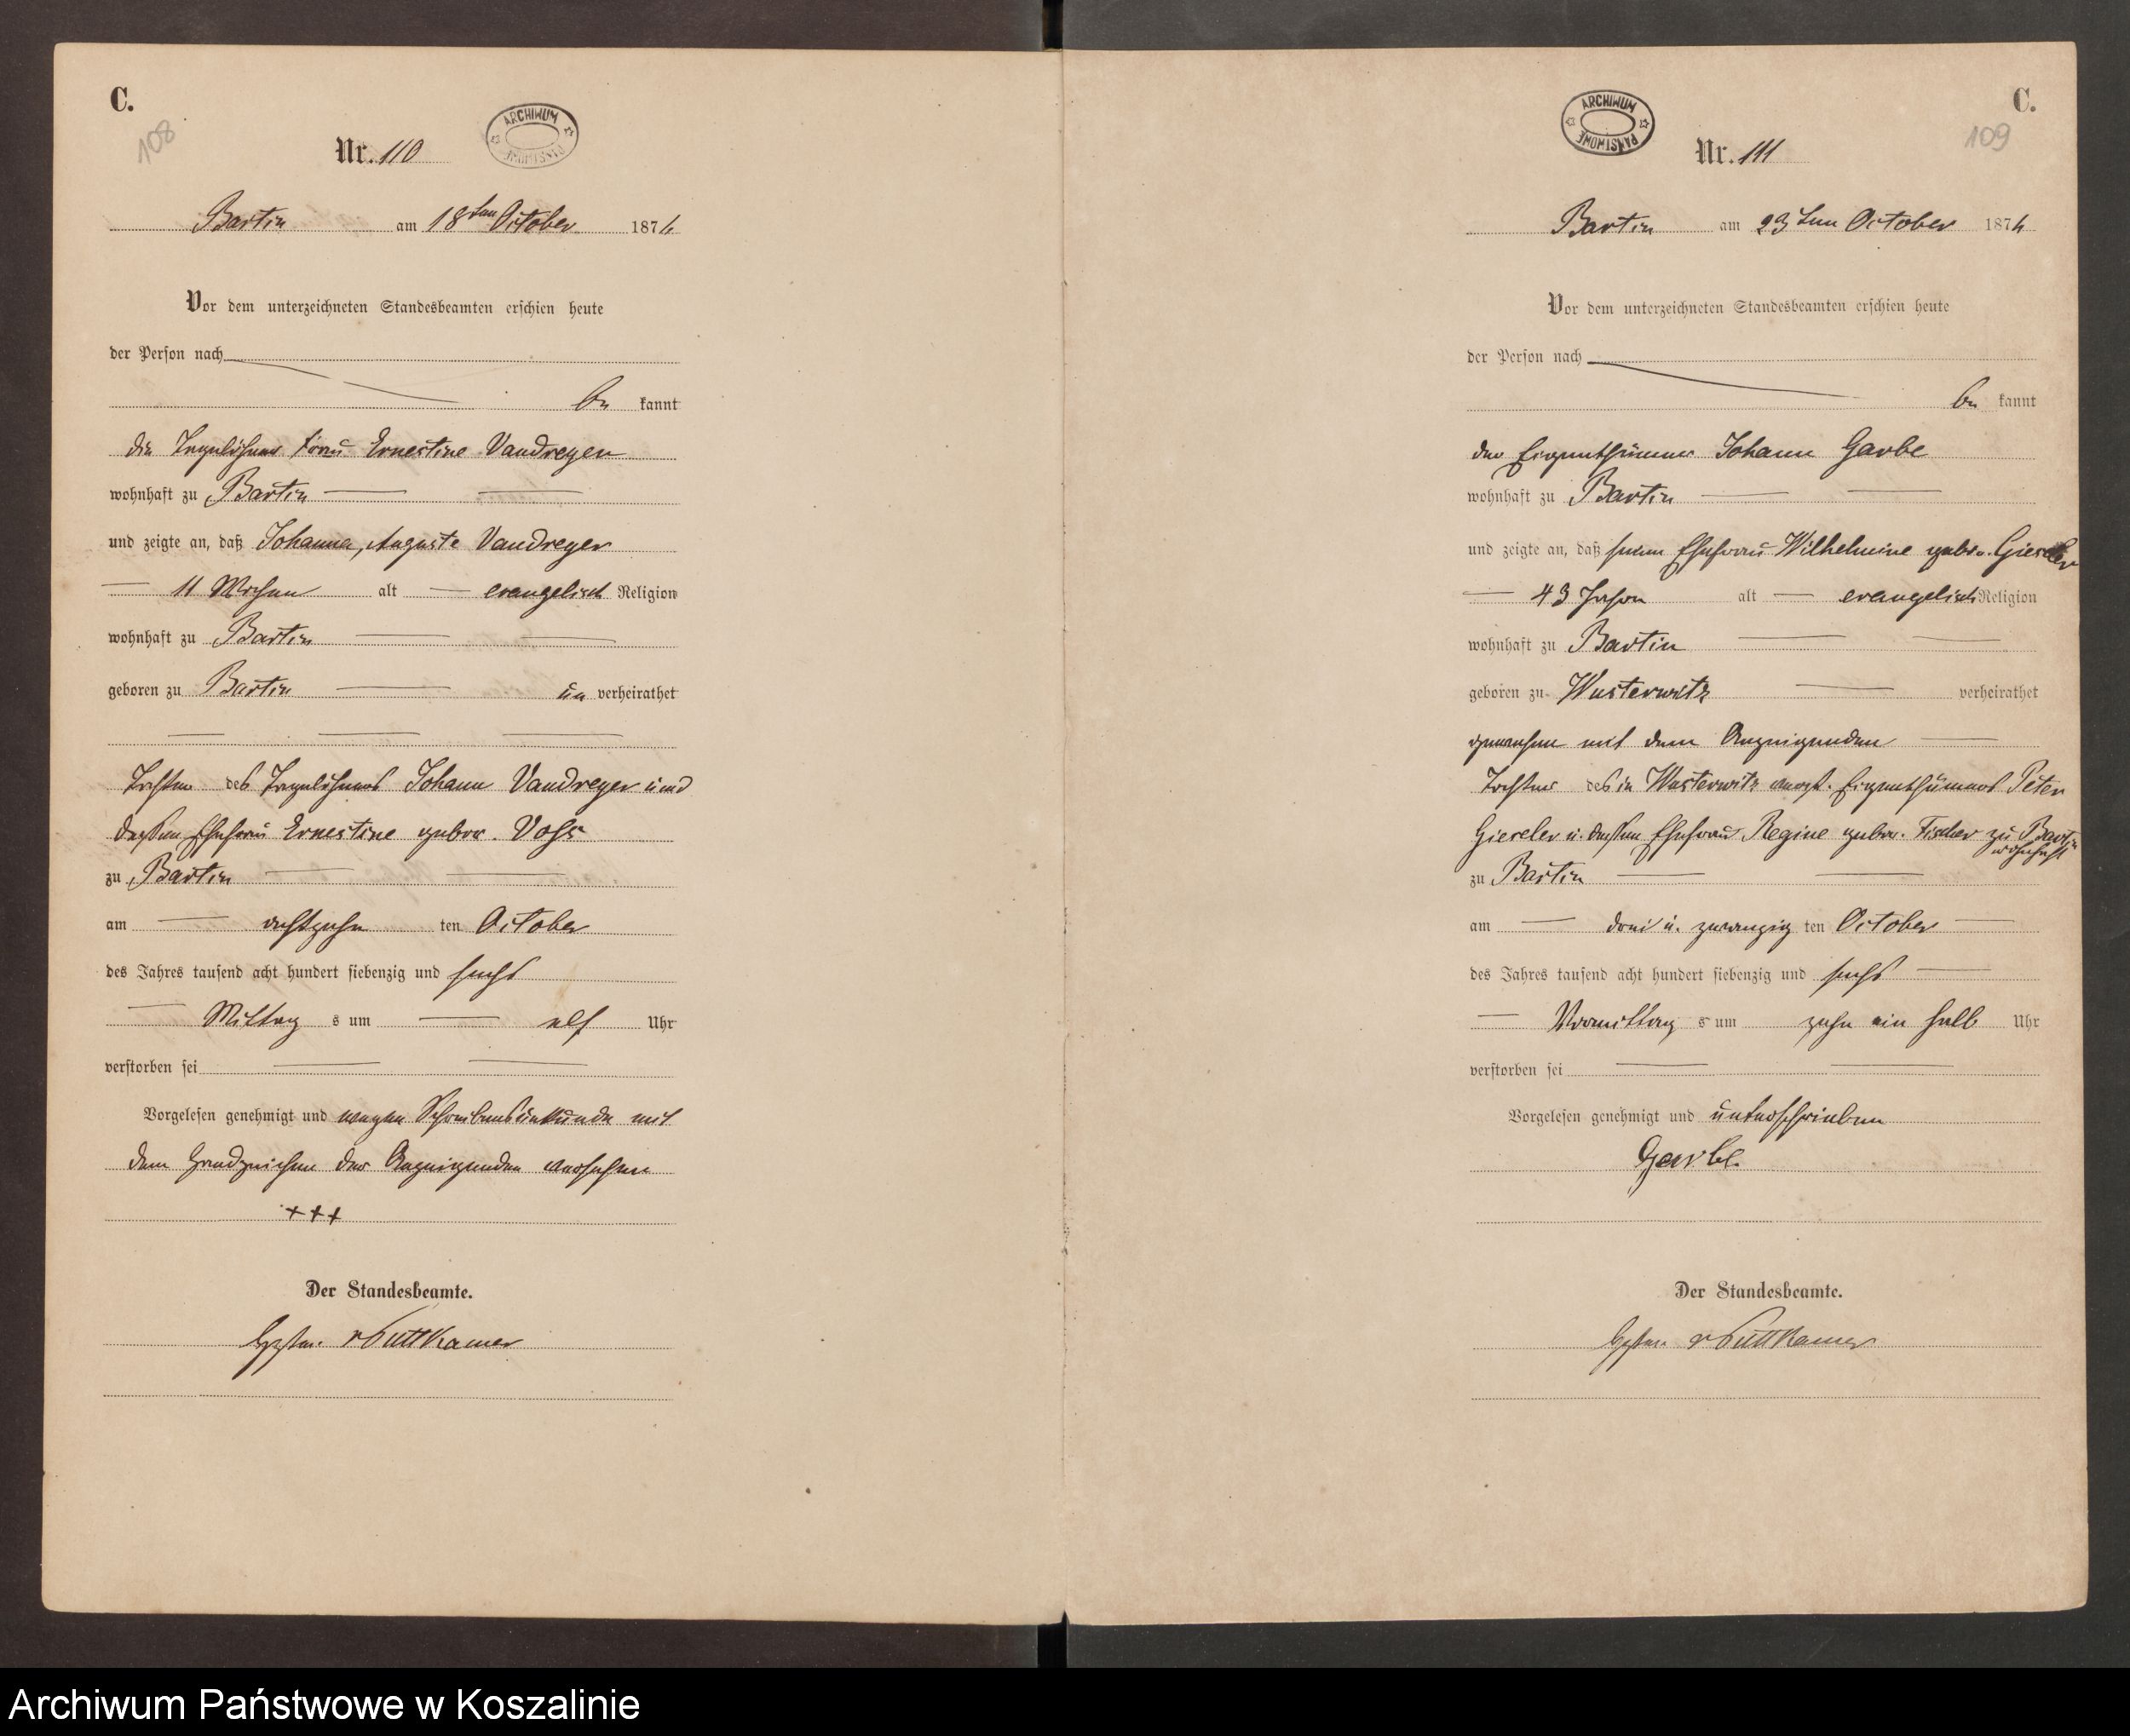 C.
108
ARCHIWUM PAŃSTWOWE
Nr. 110
Bartin am 18ten October 1876
Vor dem unterzeichneten Standesbeamten erschien heute
der Person nach
be kannt
die Tagelöhner Frau Ernestine Vandreyer
wohnhaft zu Bartin
und zeigte an, daß Johanna, Auguste Vandreyer
11 Wochen alt evangelisch Religion
wohnhaft zu Bartin
geboren zu Bartin un verheirathet
Tochter des Tagelöhners Johann Vandreyer und
dessen Ehefrau Ernestine gebor. Voss
zu Bartin
am achtzehn ten October
des Jahres tausend acht hundert siebenzig und sechs
Mittag s um elf Uhr
verstorben sei
Vorgelesen genehmigt und wegen Schreibensunkunde mit
dem Handzeichen der Anzeigenden versehen
+++
Der Standesbeamte.
v Puttkamer
C.
109
ARCHIWUM PAŃSTWOWE
Nr. 111
Bartin am 23ten October 1876
Vor dem unterzeichneten Standesbeamten erschien heute
der Person nach
be kannt
der Eigenthümer Johann Garbe
wohnhaft zu Bartin
und zeigte an, daß seine Ehefrau Wilhelmine gebor. Gieseler
43 Jahre alt evangelisch Religion
wohnhaft zu Bartin
geboren zu Wusterwitz verheirathet
gewesen mit dem Anzeigenden
Tochter des in Wusterwitz verst. Eigenthümers Peter
Gieseler u. dessen Ehefrau Regine gebor. Fischer zu Bartin
wohnhaft
zu Bartin
am drei u. zwanzig ten October
des Jahres tausend acht hundert siebenzig und sechs
Vormittag s um zehn ein halb Uhr
verstorben sei
Vorgelesen genehmigt und unterschrieben
Garbe.
Der Standesbeamte.
v Puttkamer
Archiwum Państwowe w Koszalinie